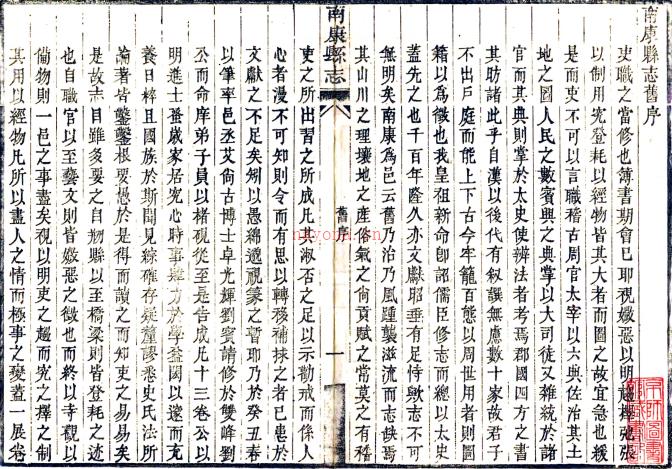 南康縣志舊序
吏職之當修也簿書期會已耶視媺惡以明趨擇弛張
以制用究登耗以經物皆其大者而圖之故宜急也緩
是而吏不可以言職稽古周官太宰以六典佐治其土
地之圖人民之數賓興之典掌以大司徒又雜統於諸
官而其典則掌於太史使辨法者考焉郡國四方之書
其昉諸此乎自漢以後代有叙譔無慮數十家故君子
不出戶庭而能上下古今牢籠百態以周世用者則圖
籍以為徵也我皇祖新命即詔儒臣修志而總以太史
蓋先之也千百年隆久亦文獻昭垂有足恃歟志不可
無明矣南康為邑云舊乃治乃風踵襲滋流而志缺焉
其山川之理壤地之產俗氣之尚貢賦之常莫之有稽
南康縣志
舊序
一
吏之所出習之所成凡其淑否之足以示勸戒而係人
心者漫不可知則令而有思以轉移補捄之者已患於
文獻之不足矣矧以愚綿適視篆之暫耶乃於癸丑春
以筆率邑丞艾尚古博士卓光輝劉賓請修於雙峰劉
公而余庠弟子員以楮硯從至是告成凡十三卷公以
明進士蚤歲家居究心時事殫力於學益閎以邃而充
養日粹且國族於斯聞見綜確存疑釐謬悉史氏法所
論著皆鑿鑿根要愚於是得而讀之而知吏之易易矣
是故志目雖多要之自刱縣以至橋梁則皆登耗之迹
也自職官以至藝文則皆媺惡之徵也而終以寺觀以
備物則一邑之事盡矣視以明吏之趨而究之擇之制
其用以經物凡所以盡人之情而極事之變蓋一展卷
nayona.cn